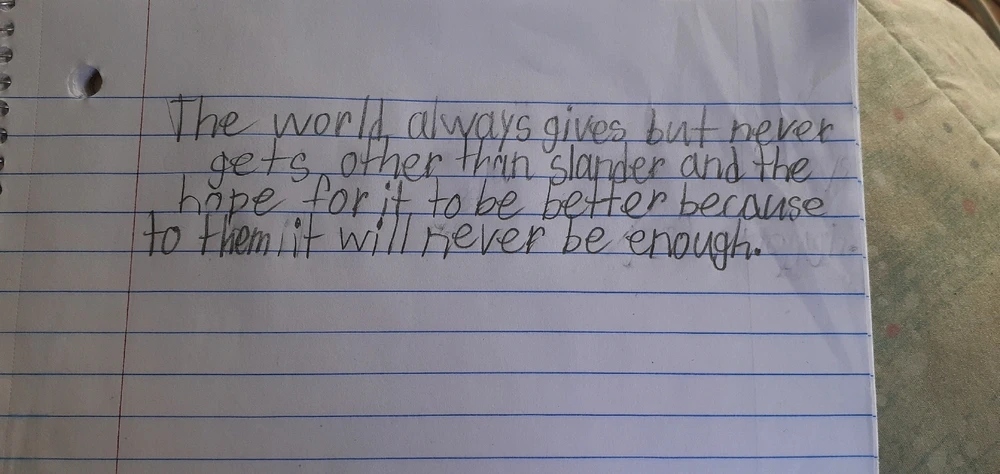 The world always gives but never
gets other than slander and the
hope for it to be better because
to them it will never be enough.